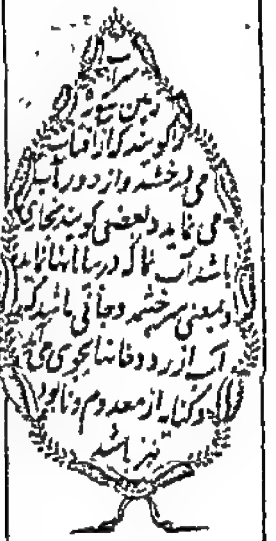 سراب
زمین شوره
را گویند که از آفتاب
می درخشد و از دور آب
می نماید و بعضی گویند بخاری
باشد آب نما که در بیابانها نماید
و بمعنی سرچشمه و جائی باشد که
آب از رودخانها بجوی می
و کنایه از معدوم و نابود
نیز باشد